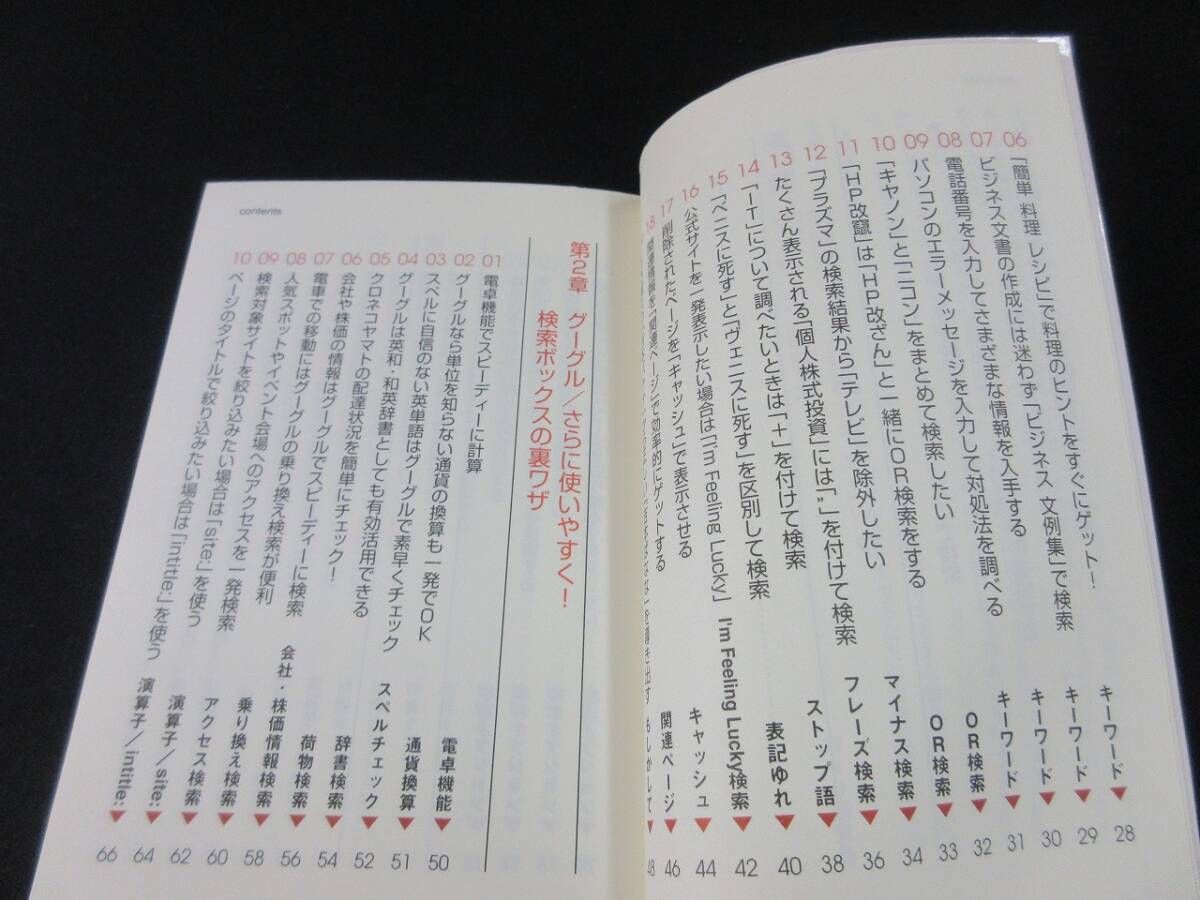 06 「簡単 料理 レシピ」で料理のヒントをすぐにゲット! キーワード▼ 28
07 ビジネス文書の作成には迷わず「ビジネス 文例集」で検索 キーワード▼ 29
08 電話番号を入力してさまざまな情報を入手する キーワード▼ 30
09 パソコンのエラーメッセージを入力して対処法を調べる キーワード▼ 31
10 「キヤノン」と「ニコン」をまとめて検索したい OR検索▼ 32
11 「HP改竄」は「HP改ざん」と一緒にOR検索をする OR検索▼ 33
12 「プラズマ」の検索結果から「テレビ」を除外したい マイナス検索▼ 34
13 たくさん表示される「個人株式投資」には「"」を付けて検索 フレーズ検索▼ 36
14 「IT」について調べたいときは「+」を付けて検索 ストップ語▼ 38
15 「ベニスに死す」と「ヴェニスに死す」を区別して検索 表記ゆれ▼ 40
16 公式サイトを一発表示したい場合は「I'm Feeling Lucky」 I'm Feeling Lucky検索▼ 42
17 削除されたページを「キャッシュ」で表示させる キャッシュ▼ 44
18 関連情報を「関連ページ」で効率的にゲットする 関連ページ▼ 46
を導き出す もしかして▼ 48
第2章 グーグル/さらに使いやすく!
検索ボックスの裏ワザ
01 電卓機能でスピーディーに計算 電卓機能▼ 50
02 グーグルなら単位を知らない通貨の換算も一発でOK 通貨換算▼ 51
03 スペルに自信のない英単語はグーグルで素早くチェック スペルチェック▼ 52
04 グーグルは英和・和英辞書としても有効活用できる 辞書検索▼ 54
05 クロネコヤマトの配達状況を簡単にチェック! 荷物検索▼ 56
06 会社や株価の情報はグーグルでスピーディーに検索 会社・株価情報検索▼ 58
07 電車での移動にはグーグルの乗り換え検索が便利 乗り換え検索▼ 60
08 人気スポットやイベント会場へのアクセスを一発検索 アクセス検索▼ 62
09 検索対象サイトを絞り込みたい場合は「site:」を使う 演算子/site:▼ 64
10 ページのタイトルで絞り込みたい場合は「intitle:」を使う 演算子/intitle:▼ 66
contents